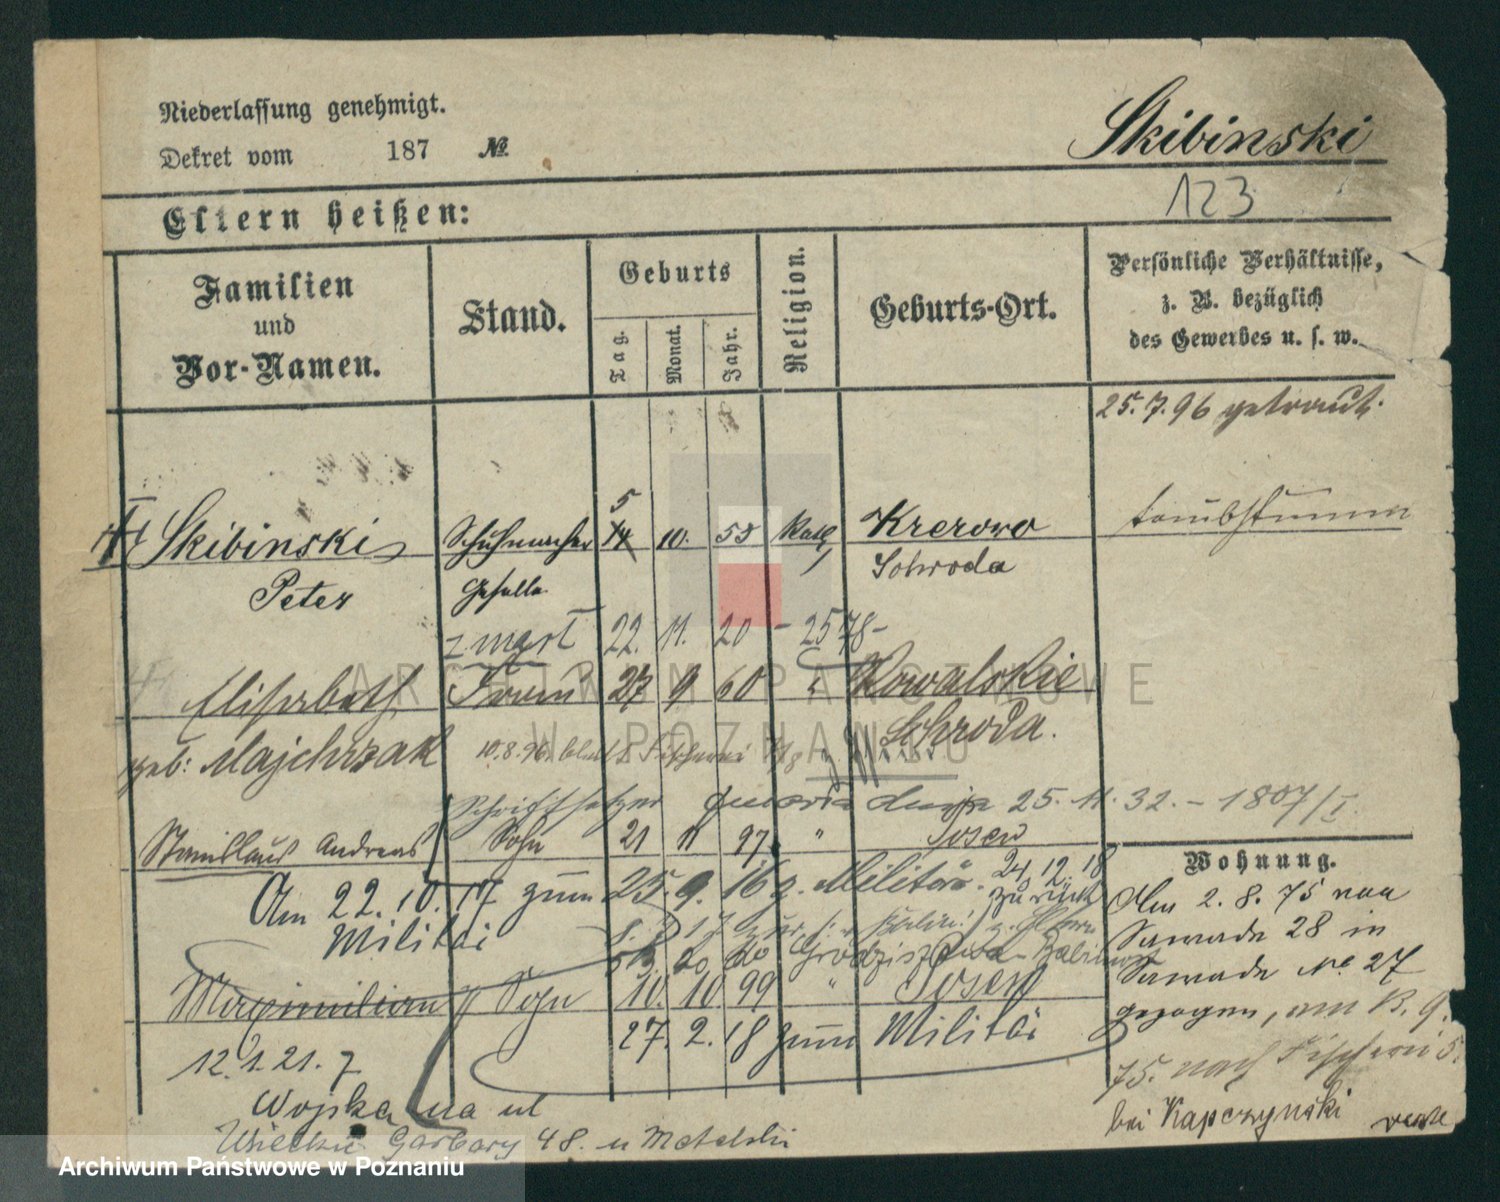 Niederlassung genehmigt.
Dekret vom 187 №
Skibinski
123
Eltern heißen:
Familien
und
Vor-Namen.
Stand.
Geburts
Tag.
Monat.
Jahr.
Religion.
Geburts-Ort.
Persönliche Verhältnisse,
z. B. bezüglich
des Gewerbes u. s. w.
25. 7. 96 getraut.
5
Skibinski Schuhmacher 14 10. 55 Kath, Krerowo taubstumm
Peter Geselle Schroda
zmarł 22. 11. 20 - 2578-
Elisabeth Frau 27 9 60 " Kowalskie
geb: Majchrzak Schroda.
10.8.96.
Schriftsetzer 25. 11. 32. - 1807/I.
Stanislaus Andreas Sohn 21 11 97 " Posen
Am 22. 10. 17 zum 25. 9. 16 z. Militär. 24. 12. 18
Militär zurück
Maximilian Sohn 10. 10 99 " Posen
27. 2. 18 zum Militär
12. 1. 21. z
Wojska na ul
Wielkie Garbary 48. u Metelski
Wohnung.
Am 2. 8. 75 von
28 in
No 27
gezogen, am
75. nach Fischerei 5.
bei Kapczynski
ARCHIWUM PAŃSTWOWE
W POZNANIU
Archiwum Państwowe w Poznaniu